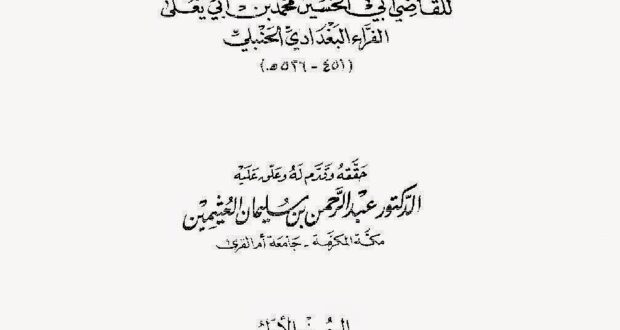 للقاضي أبي الحسين محمد بن أبي يعلى
الفراء البغدادي الحنبلي
(٤٥١ - ٥٢٦هـ)
حققه وقدم له وعلق عليه
الدكتور عبد الرحمن بن سليمان العثيمين
مكة المكرمة - جامعة أم القرى
الجزء الأول